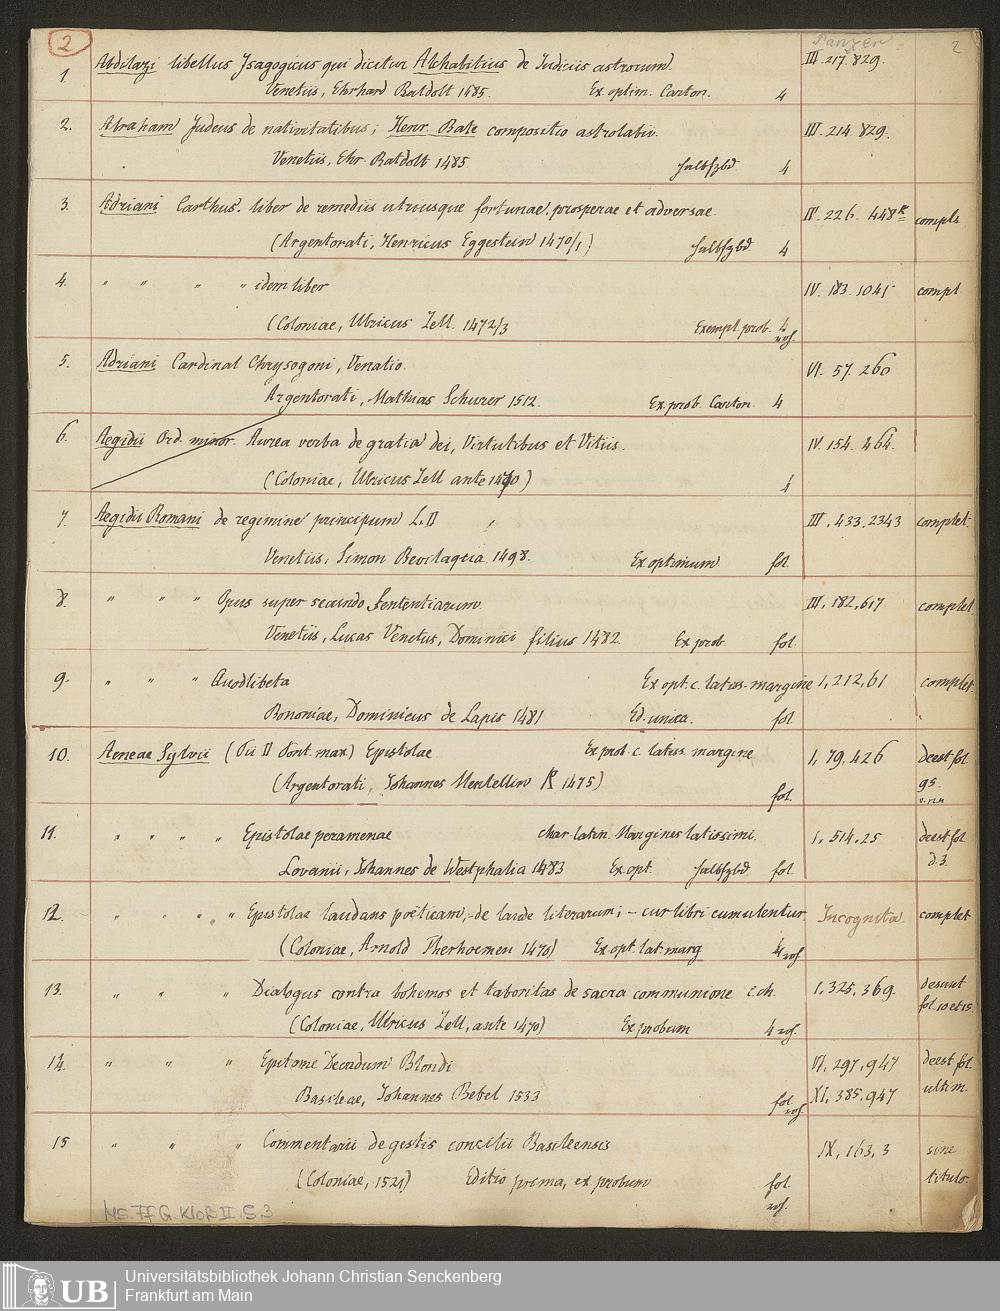 2 Panzer. 2
1. Abdilazi libellus Isagogicus qui dicitur Alchabitius de Iudiciis astrorum. III. 217. 829.
Venetiis, Ehrhard Ratdolt 1485. Ex optim. Carton. 4
2. Abraham Judeus de nativitatibus; Henr. Bate compositio astrolabii. III. 214. 829.
Venetiis, Ehr. Ratdolt 1485. Halbfzbd. 4
3. Adriani Carthus. liber de remediis utriusque fortunae, prosperae et adversae. IV. 226. 448 compl.
(Argentorati, Henricus Eggestein 1470/1) Halbfzbd. 4
4. " " " " idem liber IV. 183. 1041 compl.
(Coloniae, Ulricus Zell. 1472/3 Exempl. prob. 4
5. Adriani Cardinal Chrysogoni, Venatio. VI. 57. 260
Argentorati, Mathias Schurer 1512. Ex. prob. Carton. 4
6. Aegidii Ord. minor. Aurea verba de gratia dei, Virtutibus et Vitiis. IV. 154. 464.
(Coloniae, Ulricus Zell ante 1470) 4
7. Aegidii Romani de regimine principum L. II III. 433. 2343 complet.
Venetiis, Simon Bevilaqua 1498. Ex optimum fol.
8. " " " Opus super secundo Sententiarum. III. 182. 617 complet
Venetiis, Lucas Venetus, Dominici filius 1482. Ex prob. fol.
9. " " " Quodlibeta Ex opt. c. latiss. margine I, 212, 61 complet.
Bononiae, Dominicus de Lapis 1481 Ed. unica. fol.
10. Aeneae Sylvii (Pii II Pont. max) Epistolae Ex prob. c. latiss. margine I, 79, 426 deest fol
(Argentorati, Johannes Mentellin R 1475) fol. 95.
11. " " " " Epistolae Margines latissimi. I, 514. 25 deest fol
Lovanii, Johannes de Westphalia 1483 Ex. opt. Halbfzbd. fol. d. 3.
12. " " " " Epistolae laudans poëticam, - de laude literarum; - cur libri cumulentur. Incognita. complet
(Coloniae, Arnold Therhoernen 1470) Ex opt. lat. marg 4
13. " " " Dialogus contra bohemos et taboritas de sacra communione I, 325, 369. desunt
(Coloniae, Ulricus Zell, ante 1470) Ex probum 4 fol. 10 et 15.
14. " " " Epitome Decadum Blondi VI, 297, 947 deest fol.
Basileae, Johannes Bebel 1533 fol. XI, 385, 947 ultim.
15 " " " Commentarii de gestis concilii Basileensis IX, 163, 3 sine
(Coloniae, 1521) Editio prima, ex probum fol. titulo.
Ms. Ff. G. Kloß II. 5 3
UB Universitätsbibliothek Johann Christian Senckenberg
Frankfurt am Main